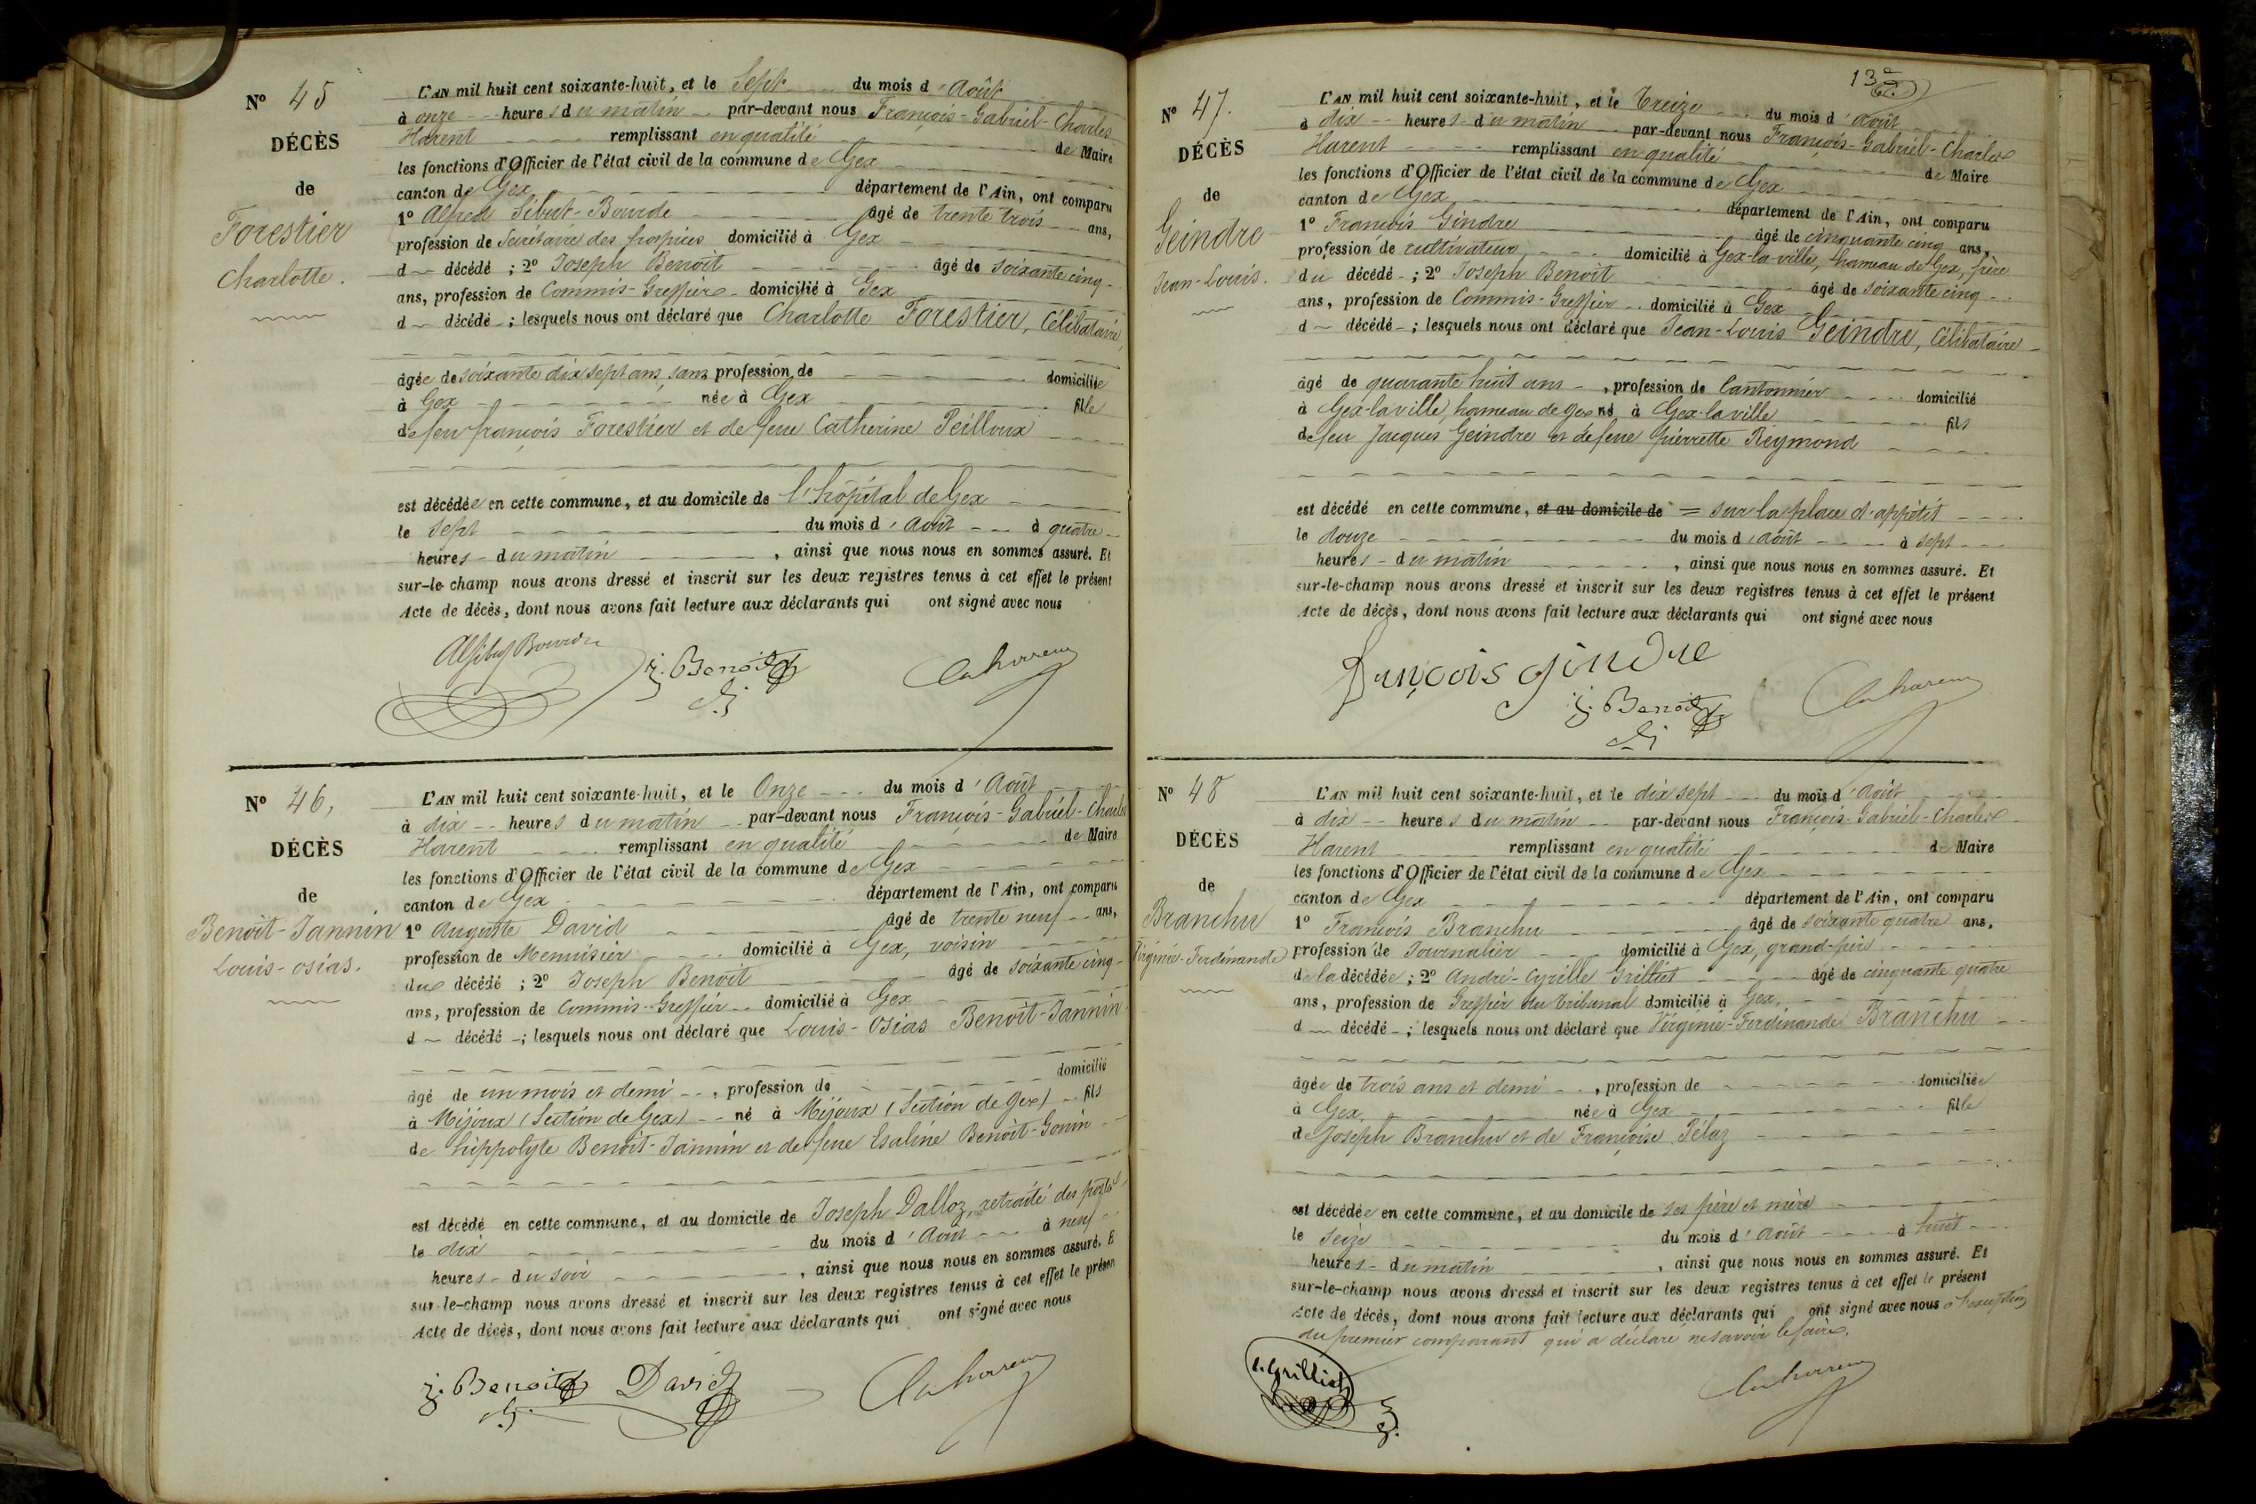 N° 45
DÉCÈS
de
Forestier
Charlotte.
L'AN mil huit cent soixante-huit, et le Sept du mois d'Août
à onze heures du matin par-devant nous François-Gabriel-Charles
Harent remplissant en qualité de Maire
les fonctions d'Officier de l'état civil de la commune de Gex
canton de Gex département de l'Ain, ont comparu
1° Alfred Sibut-Bourde âgé de trente trois ans,
profession de Secrétaire des hospices domicilié à Gex
d décédé ; 2° Joseph Benoit âgé de soixante cinq
ans, profession de Commis-Greffier domicilié à Gex
d décédé ; lesquels nous ont déclaré que Charlotte Forestier, Célibataire,
âgée de soixante dix sept ans, sans profession de domiciliée
à Gex née à Gex fille
de feu françois Forestier et de feue Catherine Peilloux
est décédée en cette commune, et au domicile de l'hôpital de Gex
le sept du mois d'Août à quatre
heures du matin , ainsi que nous nous en sommes assuré. Et
sur-le-champ nous avons dressé et inscrit sur les deux registres tenus à cet effet le présent
Acte de décès, dont nous avons fait lecture aux déclarants qui ont signé avec nous
j. Benoit
Ch harent
N° 46,
DÉCÈS
de
Benoit-Jannin
Louis-osias.
L'AN mil huit cent soixante-huit, et le Onze du mois d'Août
à dix heures du matin par-devant nous François-Gabriel-Charles
Harent remplissant en qualité de Maire
les fonctions d'Officier de l'état civil de la commune de Gex
canton de Gex département de l'Ain, ont comparu
1° Auguste David âgé de trente neuf ans,
profession de Menuisier domicilié à Gex, voisin
du décédé ; 2° Joseph Benoit âgé de soixante cinq
ans, profession de Commis-Greffier domicilié à Gex
d décédé ; lesquels nous ont déclaré que Louis-Osias Benoit-Jannin
âgé de un mois et demi , profession de domicilié
à Mijoux (Section de Gex) né à Mijoux (Section de Gex) fils
de hippolyte Benoit-Jannin et de feue Esaline Benoit-Gonin
est décédé en cette commune, et au domicile de Joseph Dalloz, retraité des postes
le dix du mois d'Août à neuf
heures du soir , ainsi que nous nous en sommes assuré. E
sur-le-champ nous avons dressé et inscrit sur les deux registres tenus à cet effet le présen
Acte de décès, dont nous avons fait lecture aux déclarants qui ont signé avec nous
j. Benoit David Ch harent
13e
N° 47.
DÉCÈS
de
Geindre
Jean-Louis.
L'AN mil huit cent soixante-huit, et le Treize du mois d'Août
à dix heures du matin par-devant nous François-Gabriel-Charles
Harent remplissant en qualité de Maire
les fonctions d'Officier de l'état civil de la commune de Gex
canton de Gex département de l'Ain, ont comparu
1° François Gindre âgé de cinquante cinq ans,
profession de cultivateur domicilié à Gex-la-ville, hameau de Gex, frère
du décédé ; 2° Joseph Benoit âgé de soixante cinq
ans, profession de Commis-Greffier domicilié à Gex
d décédé ; lesquels nous ont déclaré que Jean-Louis Geindre, Célibataire
âgé de quarante huit ans , profession de Cantonnier domicilié
à Gex-la ville, hameau de gex né à Gex-la ville fils
de feu Jacques Geindre et de feue pierrette Reymond
est décédé en cette commune, et au domicile de = sur la place d'appétit
le douze du mois d'Août à sept
heures du matin , ainsi que nous nous en sommes assuré. Et
sur-le-champ nous avons dressé et inscrit sur les deux registres tenus à cet effet le présent
Acte de décès, dont nous avons fait lecture aux déclarants qui ont signé avec nous
françois gindre
j. Benoit
Ch harent
N° 48
DÉCÈS
de
Branchu
Virginie-Ferdinande
L'AN mil huit cent soixante-huit, et le dix sept du mois d'Août
à dix heures du matin par-devant nous François-Gabriel-Charles
Harent remplissant en qualité de Maire
les fonctions d'Officier de l'état civil de la commune de Gex
canton de Gex département de l'Ain, ont comparu
1° François Branchu âgé de soixante quatre ans,
profession de Journalier domicilié à Gex, grand-père
de la décédée ; 2° André-Cyrille Grilliet âgé de cinquante quatre
ans, profession de Greffier du Tribunal domicilié à Gex,
d décédé ; lesquels nous ont déclaré que Virginie-Ferdinande Branchu
âgée de trois ans et demi , profession de domiciliée
à Gex née à Gex fille
de Joseph Branchu et de Françoise Pélaz
est décédée en cette commune, et au domicile de ses père et mère
le Seize du mois d'Août à huit
heures du matin , ainsi que nous nous en sommes assuré. Et
sur-le-champ nous avons dressé et inscrit sur les deux registres tenus à cet effet le présent
Acte de décès, dont nous avons fait lecture aux déclarants qui ont signé avec nous à l'exception
du premier comparant qui a déclaré ne savoir le faire.
Grilliet
Ch harent